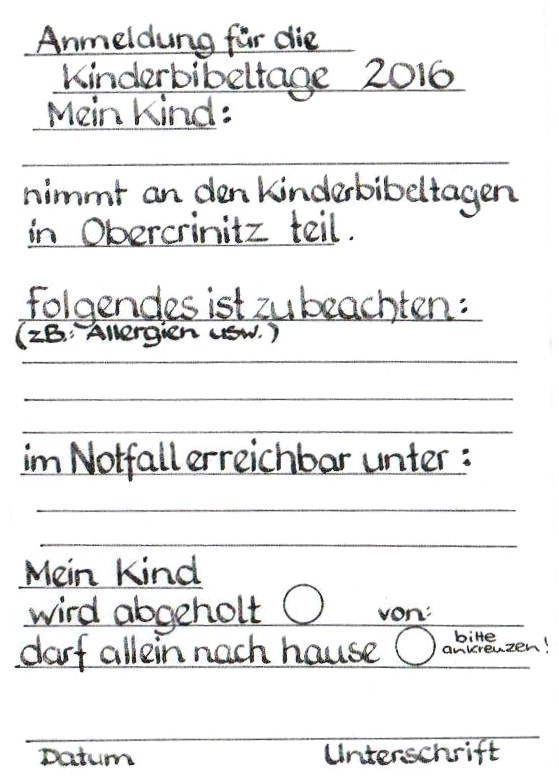 Anmeldung für die
Kinderbibeltage 2016
Mein Kind:
nimmt an den Kinderbibeltagen
in Obercrinitz teil.
folgendes ist zu beachten:
(zB.: Allergien usw.)
im Notfall erreichbar unter:
Mein Kind
wird abgeholt von:
darf allein nach hause bitte ankreuzen!
Datum Unterschrift